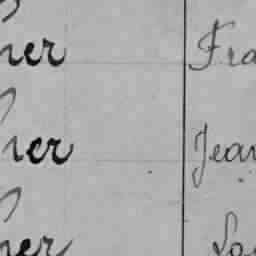 her Fra
her Jean
her